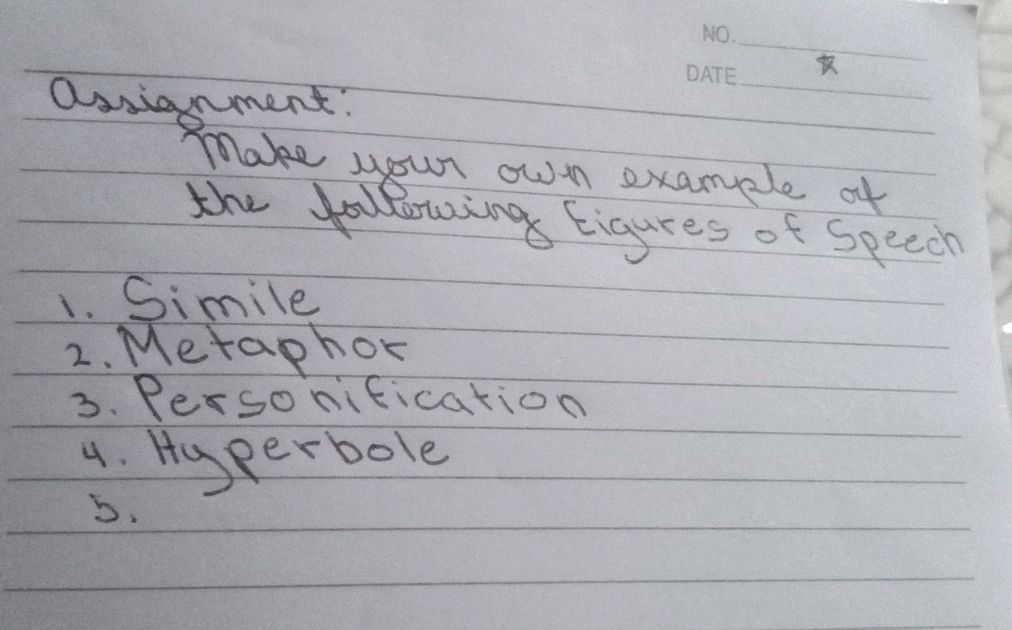 NO.
DATE
Assignment:
Make your own example of
the following Figures of Speech
1. Simile
2. Metaphor
3. Personification
4. Hyperbole
5.